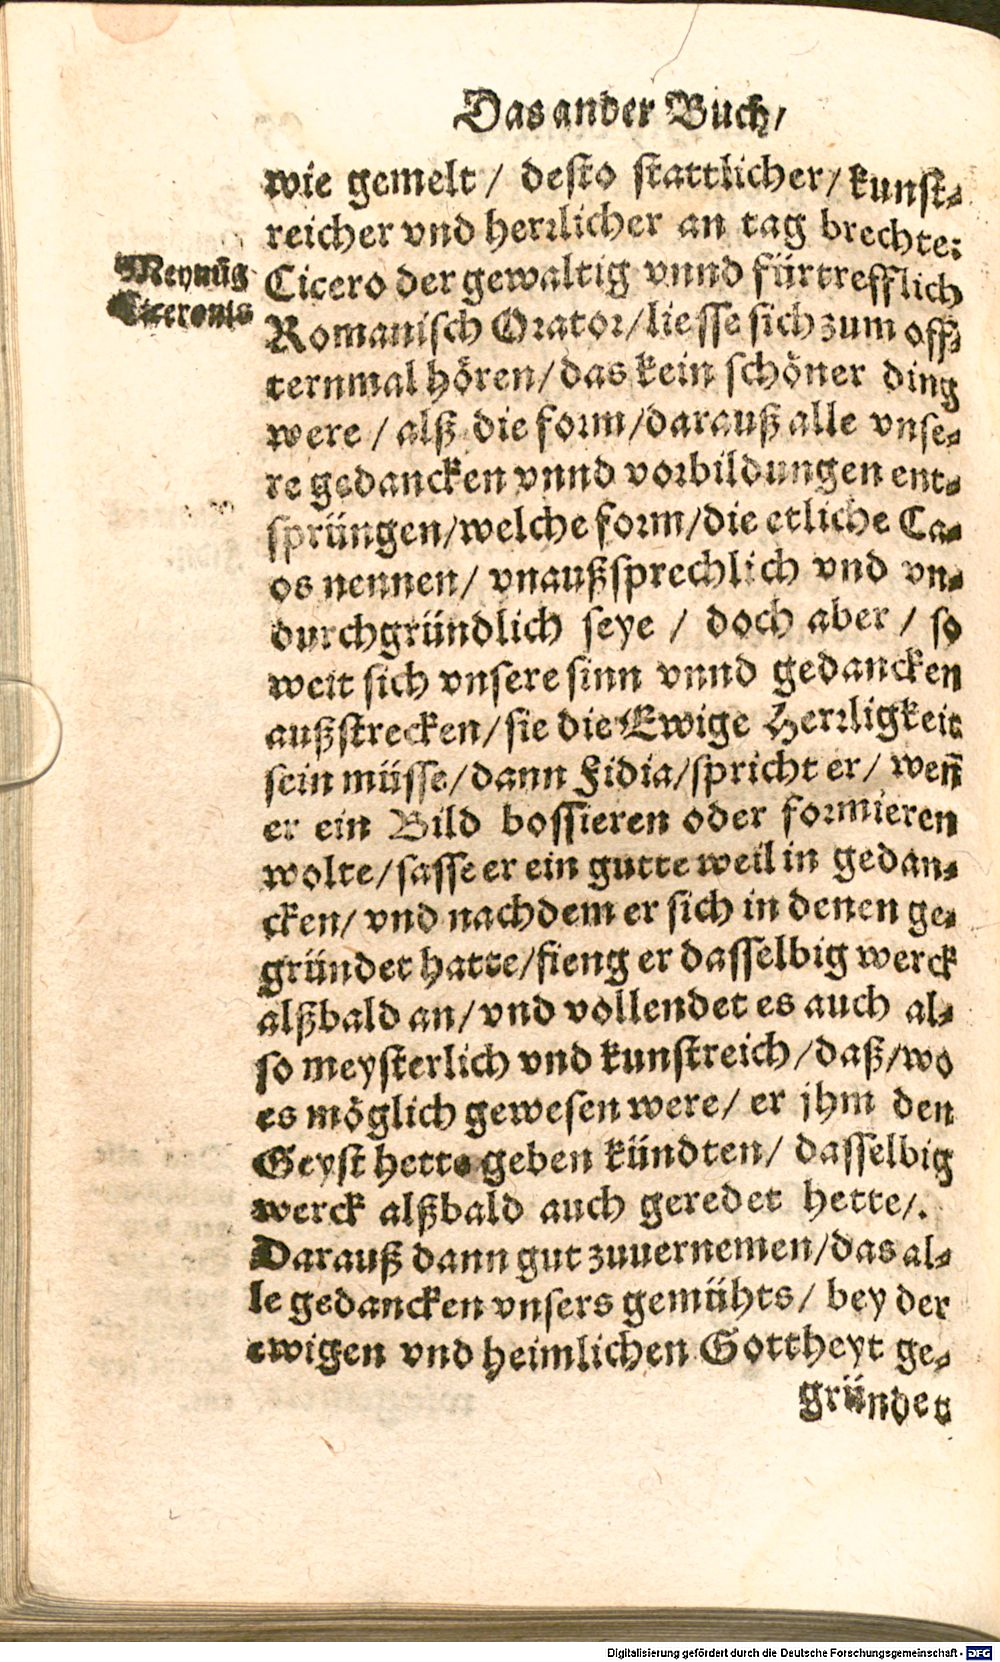 Das ander Buch/
wie gemelt / desto stattlicher/ kunst⸗
reicher vnd herrlicher an tag brechte:
Meynūg
Ciceronis
Cicero der gewaltig vnnd fürtrefflich
Romanisch Orator/liesse sich zum off⸗
ternmal hören/das kein schöner ding
were / alß die form/darauß alle vnse⸗
re gedancken vnnd vorbildungen ent⸗
sprüngen/welche form/die etliche Ca⸗
os nennen/ vnaußsprechlich vnd vn⸗
durchgründlich seye / doch aber / so
weit sich vnsere sinn vnnd gedancken
außstrecken/sie die Ewige Herrligkeit
sein müsse/dann Fidia/spricht er/ weñ
er ein Bild bossieren oder formieren
wolte/sasse er ein gutte weil in gedan⸗
cken/ vnd nachdem er sich in denen ge⸗
gründet hatte/fieng er dasselbig werck
alßbald an/vnd vollendet es auch al⸗
so meysterlich vnd kunstreich/daß/wo
es möglich gewesen were/ er jhm den
Geyst hette geben kündten/ dasselbig
werck alßbald auch geredet hette/.
Darauß dann gut zuuernemen/das al⸗
le gedancken vnsers gemühts/ bey der
ewigen vnd heimlichen Gottheyt ge⸗
gründet
Digitalisierung gefördert durch die Deutsche Forschungsgemeinschaft - DFG